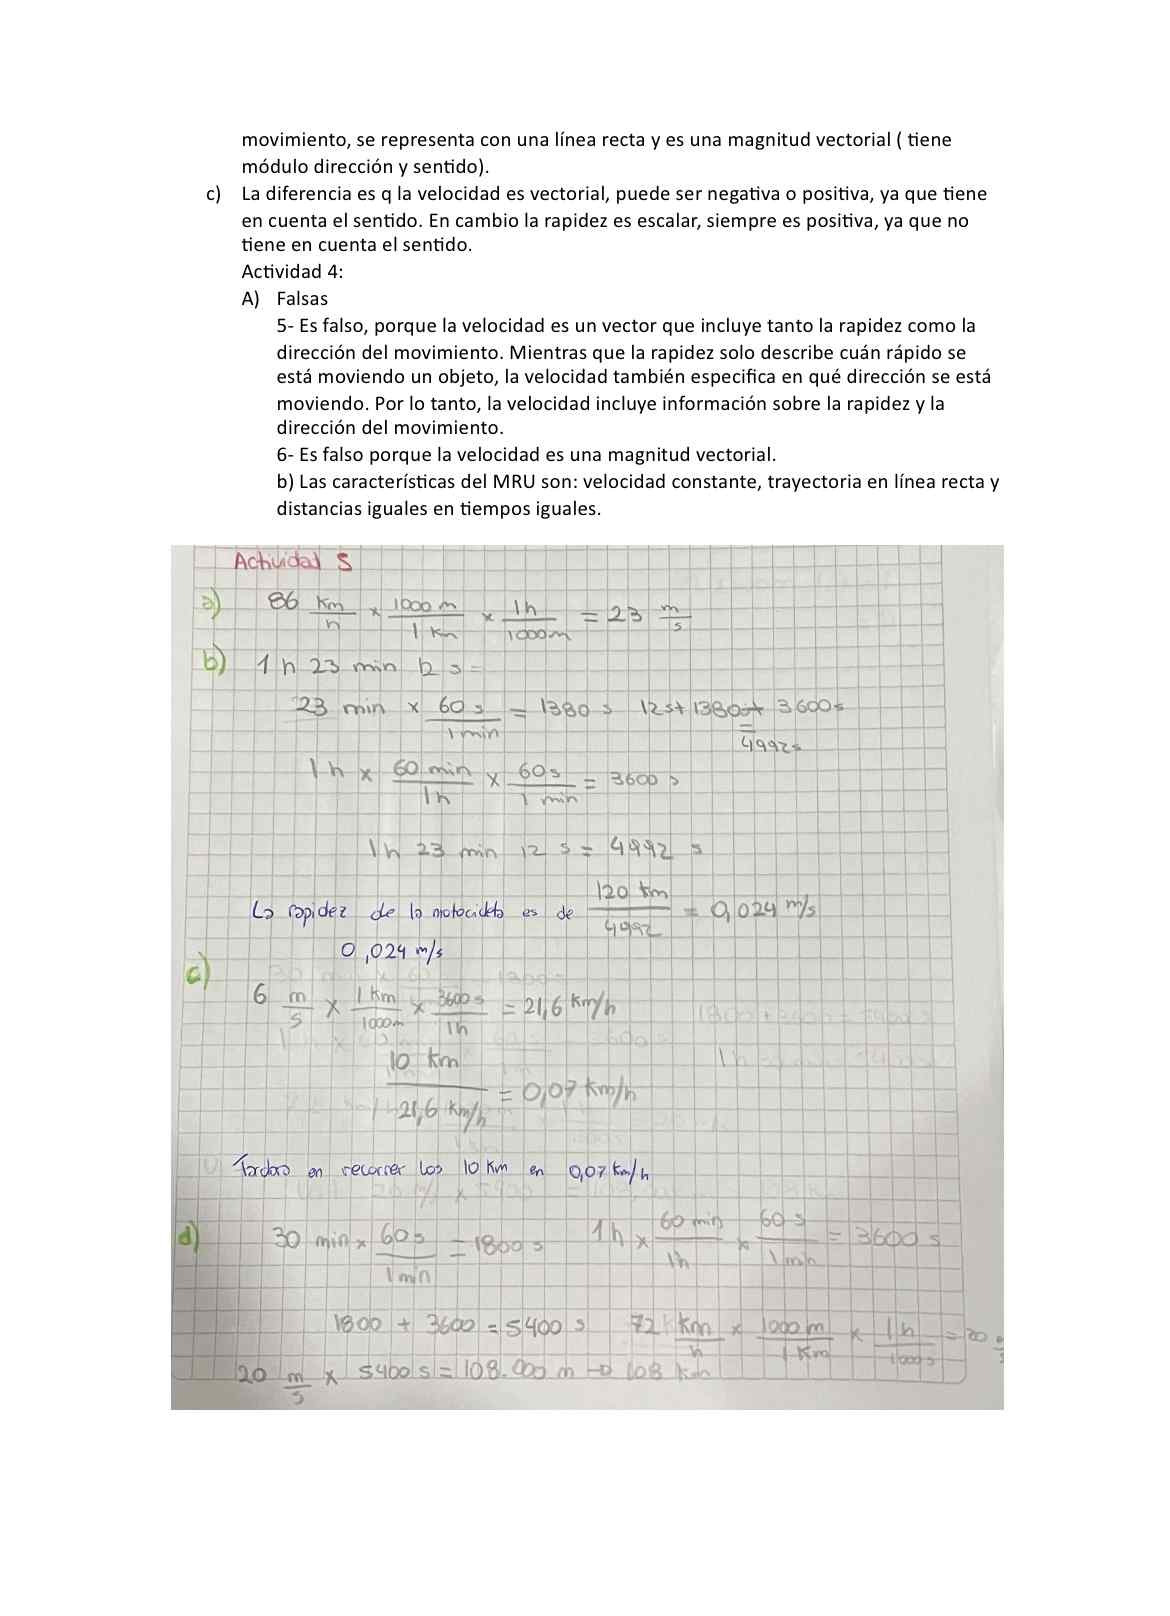 movimiento, se representa con una línea recta y es una magnitud vectorial ( tiene
módulo dirección y sentido).
c) La diferencia es q la velocidad es vectorial, puede ser negativa o positiva, ya que tiene
en cuenta el sentido. En cambio la rapidez es escalar, siempre es positiva, ya que no
tiene en cuenta el sentido.
Actividad 4:
A) Falsas
5- Es falso, porque la velocidad es un vector que incluye tanto la rapidez como la
dirección del movimiento. Mientras que la rapidez solo describe cuán rápido se
está moviendo un objeto, la velocidad también especifica en qué dirección se está
moviendo. Por lo tanto, la velocidad incluye información sobre la rapidez y la
dirección del movimiento.
6- Es falso porque la velocidad es una magnitud vectorial.
b) Las características del MRU son: velocidad constante, trayectoria en línea recta y
distancias iguales en tiempos iguales.
Actividad 5
a) 86 km/h × 1000 m/1 km × 1h/1000m = 23 m/s
b) 1 h 23 min 12 s =
23 min × 60 s/1 min = 1380 s 12s+1380+ 3600s
= 4992s
1h × 60 min/1h × 60s/1 min = 3600 s
1h 23 min 12 s = 4992 s
La rapidez de la motocicleta es de 120 km/4992 = 0,024 m/s
0,024 m/s
c)
6 m/s × 1 Km/1000m × 3600 s/1h = 21,6 Km/h
10 km/21,6 Km/h = 0,07 Km/h
Tardara en recorrer los 10 Km en 0,07 Km/h
d) 30 min × 60 s/1 min = 1800 s 1h × 60 min/1h × 60 s/1 min = 3600 s
1800 + 3600 = 5400 s 72 Km/h × 1000 m/1 Km × 1 h/1000 s = 20
20 m/s × 5400 s = 108.000 m → 108 Km